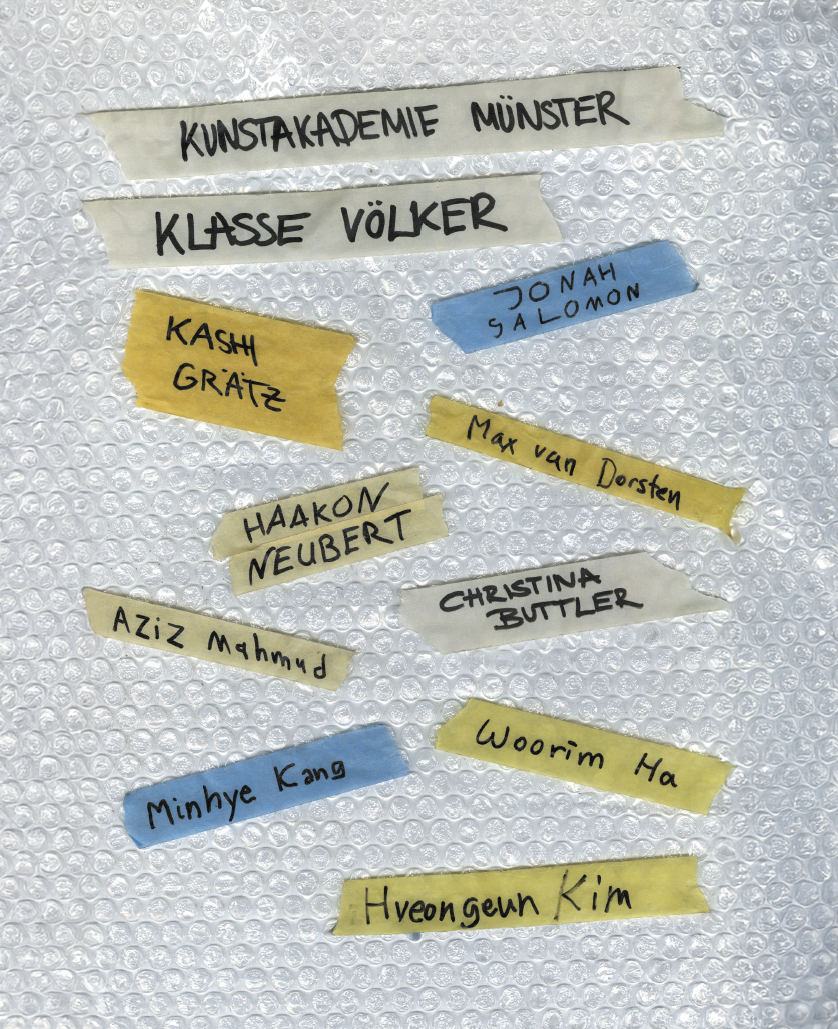 KUNSTAKADEMIE MÜNSTER
KLASSE VÖLKER
JONAH
SALOMON
KASHI
GRÄTZ
Max van Dorsten
HAAKON
NEUBERT
CHRISTINA
BUTTLER
AZiZ Mahmud
Woorim Ha
Minhye Kang
Hyeongeun Kim